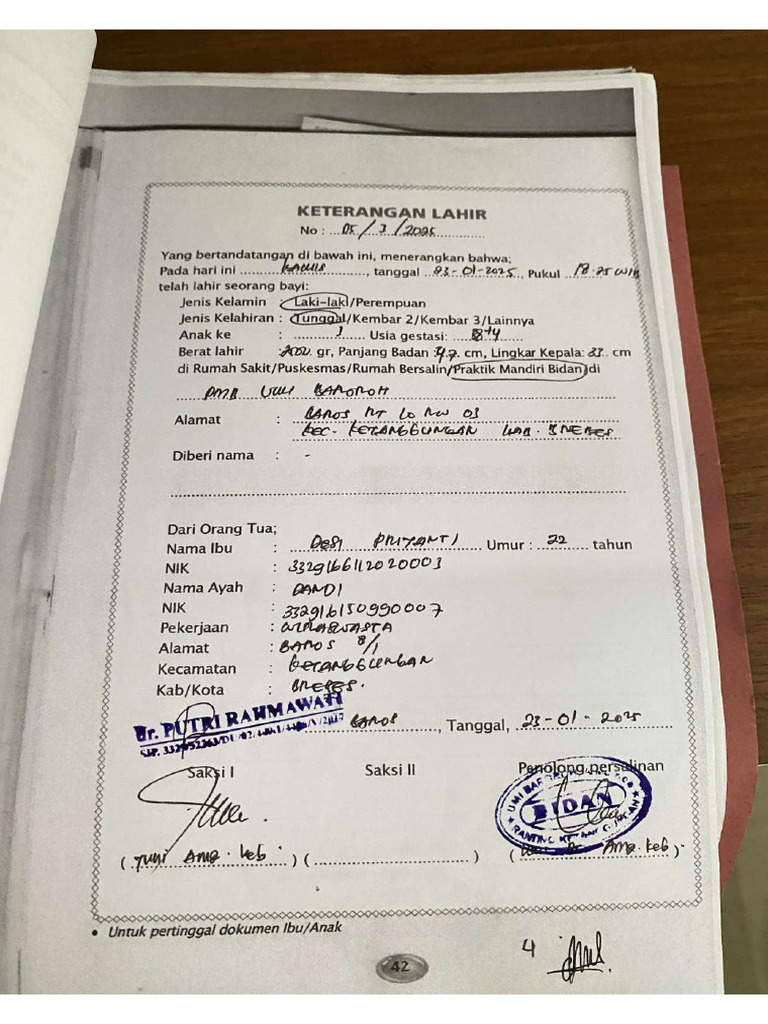 KETERANGAN LAHIR
No : 05/1/2025
Yang bertandatangan di bawah ini, menerangkan bahwa;
Pada hari ini KAMIS, tanggal 23-01-2025, Pukul 18.25 WIB
telah lahir seorang bayi:
Jenis Kelamin : Laki-laki/Perempuan
Jenis Kelahiran : Tunggal/Kembar 2/Kembar 3/Lainnya
Anak ke : 1 Usia gestasi:
Berat lahir : gr, Panjang Badan : 47 cm, Lingkar Kepala: 33 cm
di Rumah Sakit/Puskesmas/Rumah Bersalin/Praktik Mandiri Bidan/di
PMB UMI BAROROH
Alamat : BAROS RT 10 RW 03
KEC. KETANGGUNGAN KAB. BREBES
Diberi nama : -
Dari Orang Tua;
Nama Ibu : DESI PRIYANTI Umur : 22 tahun
NIK : 3329166112020003
Nama Ayah : DANDI
NIK : 3329161509990007
Pekerjaan : WIRASWASTA
Alamat : BAROS 8/1
Kecamatan : KETANGGUNGAN
Kab/Kota : BREBES.
dr. PUTRI RAHMAWATI
BAROS, Tanggal, 23-01-2025
Saksi I Saksi II Penolong persalinan
BIDAN
(Tuti Amd. Keb) ( ) ( Amd. Keb)
• Untuk pertinggal dokumen Ibu/Anak
4
42